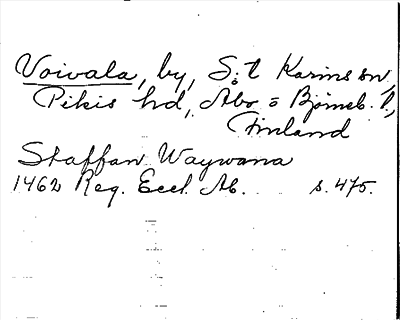 Voivala, by, S:t Karins sn,
Pikis hd, Åbo o Björneb. l.,
Finland
Staffan Waywana
1462 Reg. Eccl. Ab. s. 475.